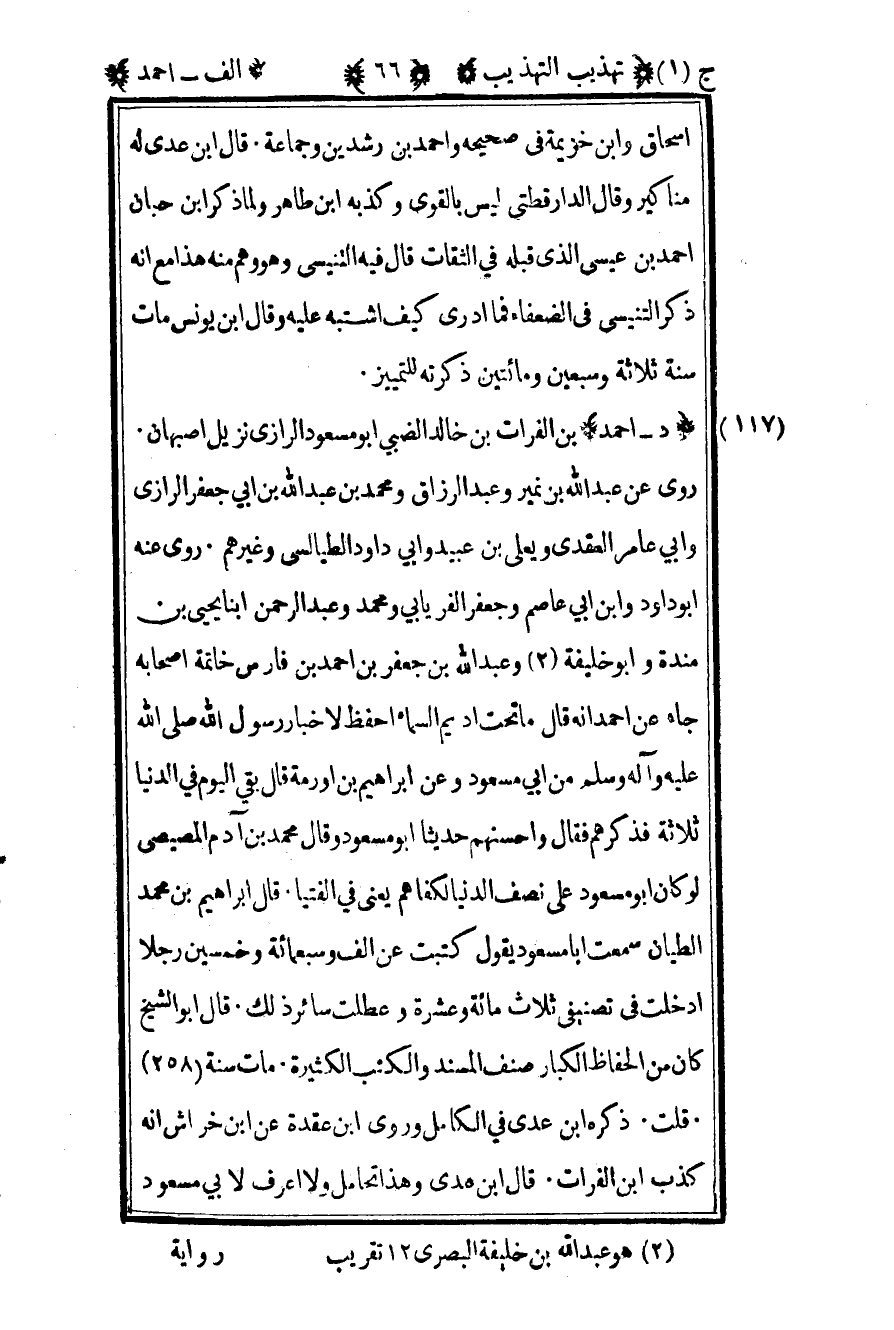 ج (١) ﴿ تهذيب التهذيب ﴾ ﴿ ٦٦ ﴾ ﴿ الف ــ احمد ﴾
اسحاق وابن خزيمة فى صحيحه واحمد بن رشدين وجماعة ٠ قال ابن عدى له
مناكير وقال الدارقطنى ليس بالقوى وكذبه ابن طاهر ولما ذكر ابن حبان
احمد بن عيسى الذى قبله في الثقات قال فيه التنيسى وهو وهم منه هذا مع انه
ذكر التنيسى فى الضعفاء فما ادرى كيف اشتبه عليه وقال ابن يونس مات
سنة ثلاثة وسبعين ومائتين ذكرته للتمييز ٠
(١١٧) ﴿ د ــ احمد ﴾ بن الفرات بن خالد الضبي ابو مسعود الرازى نزيل اصبهان ٠
روى عن عبدالله بن نمير وعبد الرزاق ومحمد بن عبدالله بن ابي جعفر الرازى
وابي عامر العقدى ويعلى بن عبيد وابي داود الطيالسى وغيرهم ٠ روى عنه
ابو داود وابن ابي عاصم وجعفر الفريابي ومحمد وعبد الرحمن ابنا يحيى بن
مندة و ابو خليفة (٢) وعبدالله بن جعفر بن احمد بن فارس خاتمة اصحابه
جاء عن احمد انه قال ما تحت اديم السماء احفظ لاخبار رسول الله صلى الله
عليه وآله وسلم من ابي مسعود و عن ابراهيم بن اورمة قال بقي اليوم في الدنيا
ثلاثة فذكرهم فقال واحسنهم حديثا ابو مسعود وقال محمد بن آدم المصيصى
لوكان ابو مسعود على نصف الدنيا لكفاهم يعنى في الفتيا ٠ قال ابراهيم بن محمد
الطيان سمعت ابا مسعود يقول كتبت عن الف وسبعمائة وخمسين رجلا
ادخلت فى تصنيفى ثلاث مائة وعشرة و عطلت سائر ذلك ٠ قال ابو الشيخ
كان من الحفاظ الكبار صنف المسند والكتب الكثيرة ٠ مات سنة (٢٥٨)
٠ قلت ٠ ذكره ابن عدى في الكامل وروى ابن عقدة عن ابن خراش انه
كذب ابن الفرات ٠ قال ابن عدى وهذا تحامل ولا اعرف لابي مسعود
(٢) هو عبدالله بن خليفة البصرى ١٢ تقريب رواية